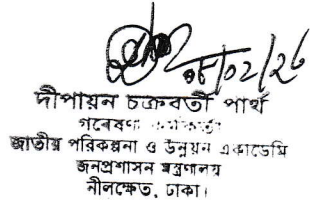 ০৮/০২/২৬
দীপায়ন চক্রবর্তী পার্থ
গবেষণা কর্মকর্তা
জাতীয় পরিকল্পনা ও উন্নয়ন একাডেমি
জনপ্রশাসন মন্ত্রণালয়
নীলক্ষেত, ঢাকা।